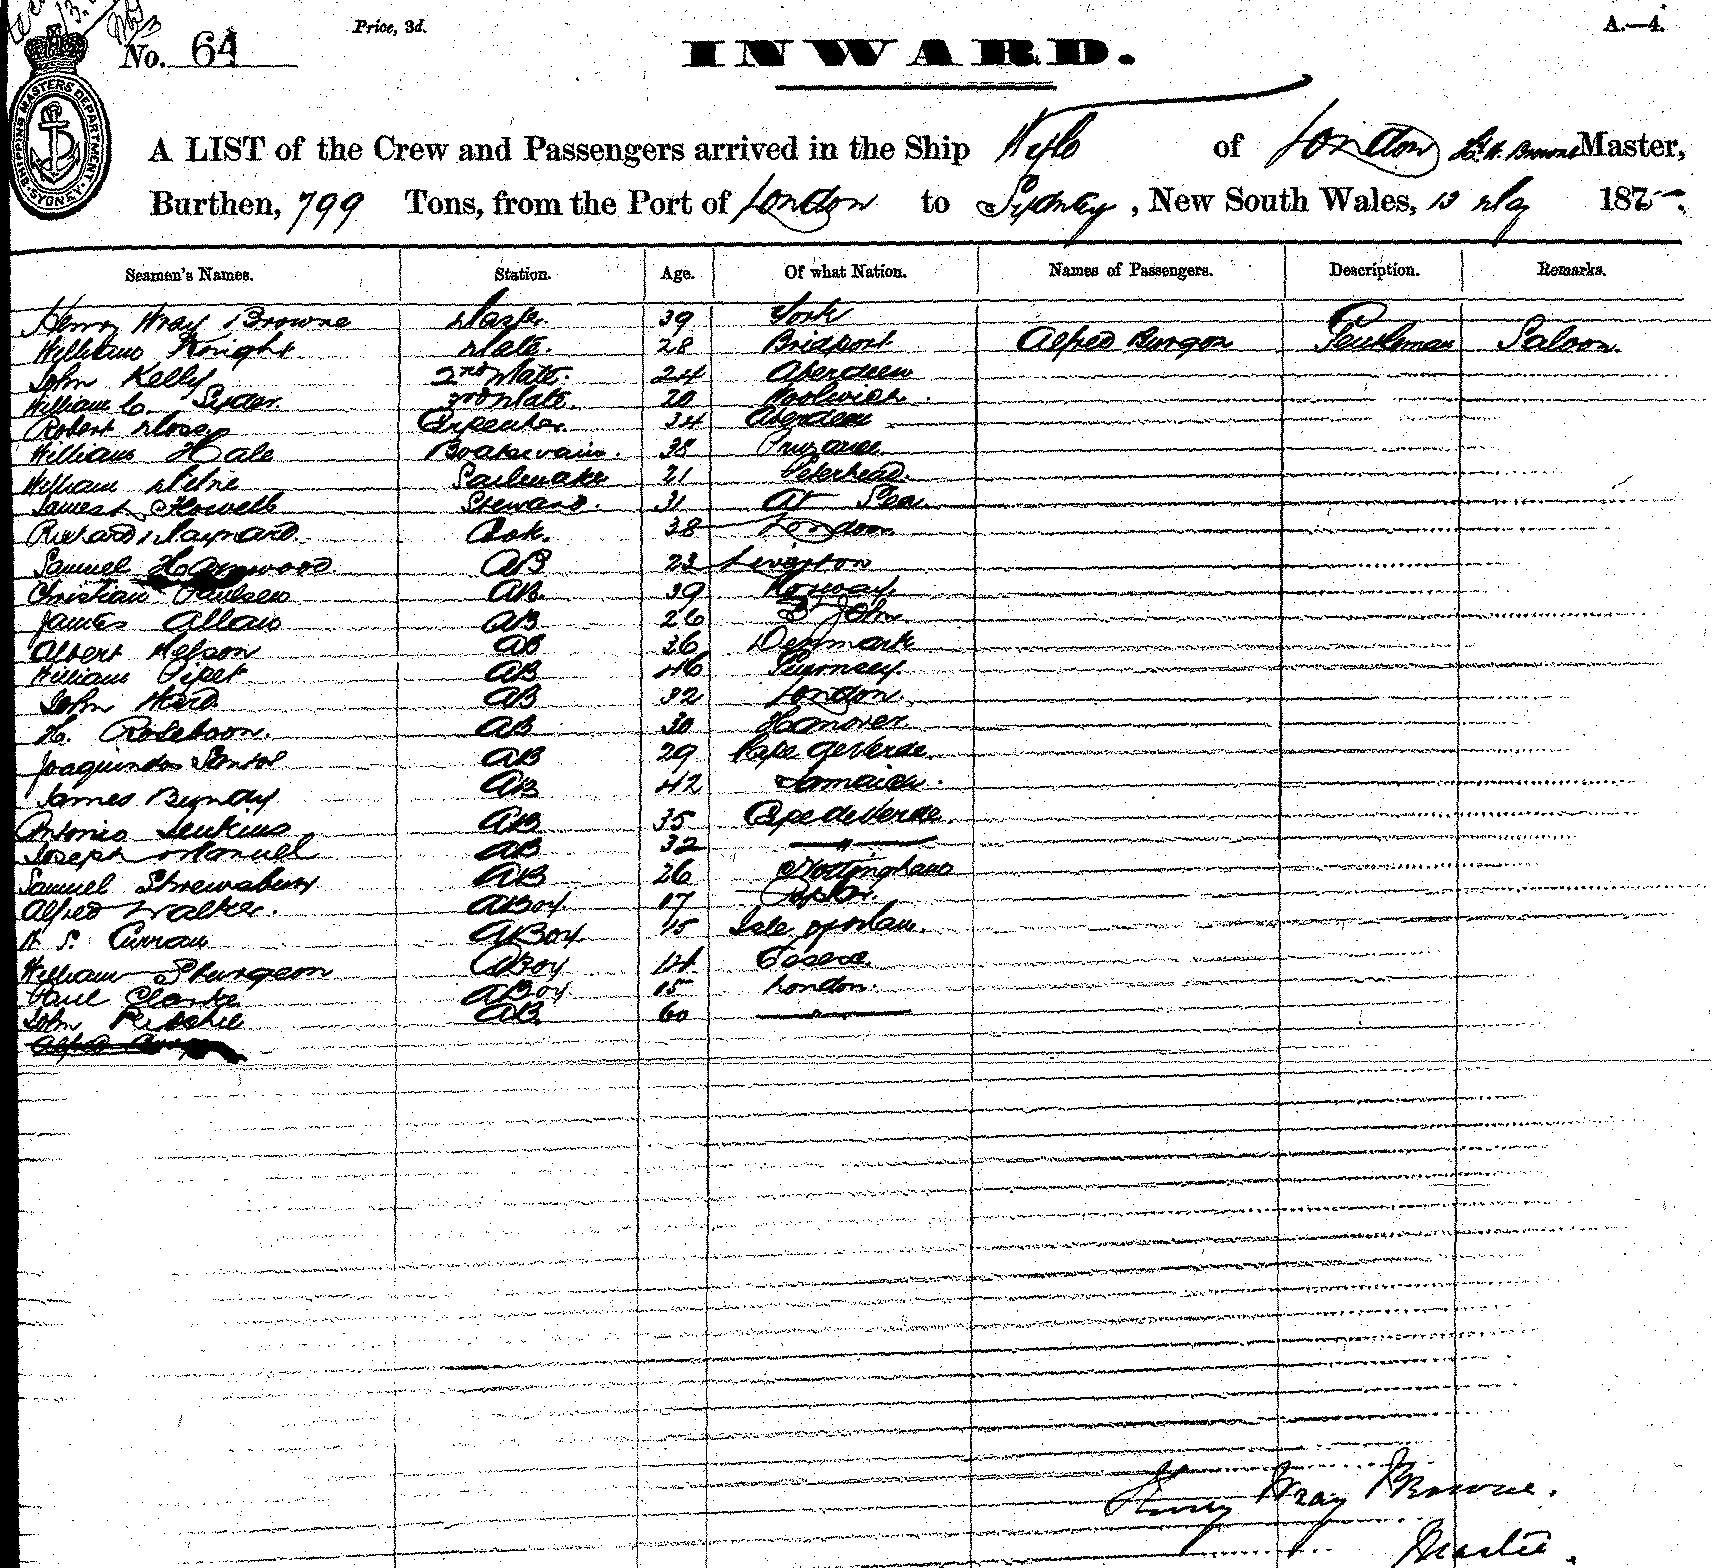 No. 64
Price, 3d.
A.—4.
INWARD.
SHIPPING MASTERS DEPARTMENT SYDNEY
A LIST of the Crew and Passengers arrived in the Ship of London Hy. W. Browne Master,
Burthen, 799 Tons, from the Port of London to Sydney, New South Wales, 13 May 187
Seamen's Names. Station. Age. Of what Nation. Names of Passengers. Description. Remarks.
Henry Wray Browne Master 39 York
William Knight Mate. 28 Bridport Alfred Burgon Gentleman Saloon.
John Kelly 2nd Mate. 24 Aberdeen
William C. 3rd Mate. 20 Woolwich
Robert Carpenter. 34 Aberdeen
William Hale Boatswain. 38
William Milne Sailmaker 21 Peterhead.
James Howell Steward. 31 At Sea
Richard Maynard. Cook. 38 London
Samuel Harwood AB 23
Christian Paulsen AB. 39 Norway
James Allan AB 26 St John
Albert Nelson AB 36 Denmark
William Pipet AB 46 Guernsey.
John Ward AB 32 London.
H. AB 30 Hanover
AB 29 Cape de Verde.
James Bundy AB 42 Jamaica.
Antonio Jenkins AB 35 Cape de Verde
Joseph Manuel AB 32 "
Samuel Shrewsbury AB 26 Nottingham
Alfred Walker. Boy. 17
Curran Boy. 15 Isle of Man.
William Sturgeon Boy 14
Paul Clarke Boy 15 London.
John Ritchie AB. 60 "
Henry Wray Browne.
Master.